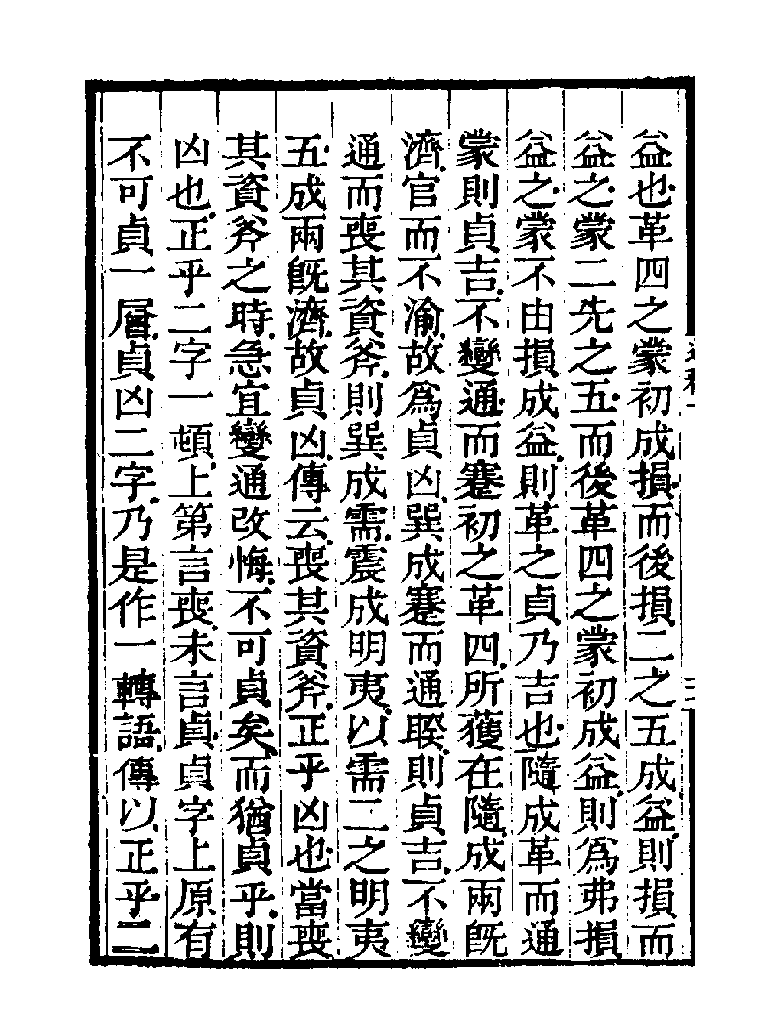 益也革四之蒙初成損而後損二之五成益則損而
益之蒙二先之五而後革四之蒙初成益則為弗損
益之蒙不由損成益則革之貞乃吉也隨成革而通
蒙則貞吉不變通而蹇初之革四所獲在隨成兩旣
濟官而不渝故爲貞凶巽成蹇而通睽則貞吉不變
通而喪其資斧則巽成需震成明夷以需二之明夷
五成兩旣濟故貞凶傳云喪其資斧正乎凶也當喪
其資斧之時急宜變通改悔不可貞矣而猶貞乎則
凶也正乎二字一頓上第言喪未言貞貞字上原有
不可貞一層貞凶二字乃是作一轉語傳以正乎二